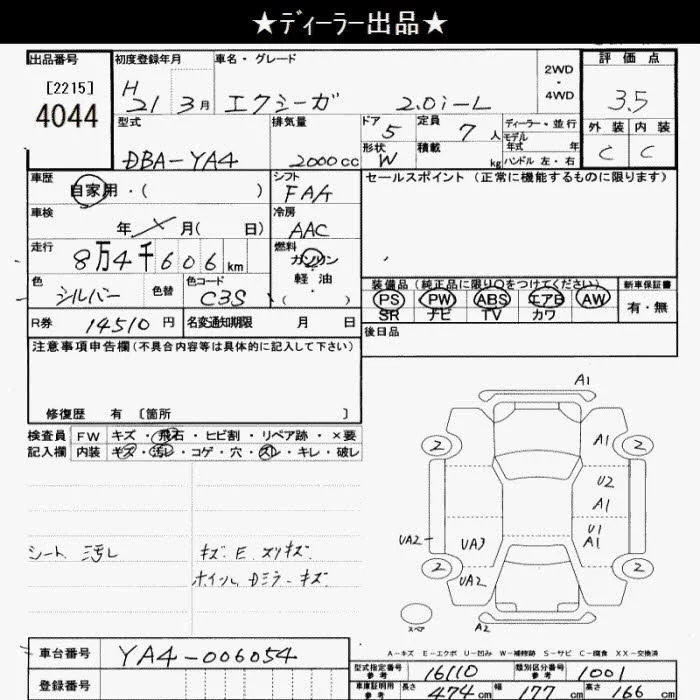 ★ディーラー出品★
出品番号 初度登録年月 車名・グレード 2WD・4WD 評価点
[2215]
4044
H 21 3月 エクシーガ 2.0i-L 3.5
型式 排気量 ドア 5 定員 7人 ディーラー・並行 外装 内装
モデル年式 年
DBA-YA4 2000cc 形状 W 積載 kg ハンドル 左・右 C C
車歴 自家用・( ) シフト FAA セールスポイント (正常に機能するものに限ります)
車検 年 月( 日) 冷房 AAC
走行 8万4千606km 燃料 ガソリン 軽油 ( )
色 シルバー 色替 色コード C3S
装備品 (純正品に限り○をつけてください) 新車保証書
PS PW ABS エアB AW 有・無
SR ナビ TV カワ
R券 14510円 名変通知期限 月 日 後日品
注意事項申告欄(不具合内容等は具体的に記入して下さい)
修復歴 有 [箇所 ]
検査員 FW キズ・飛石・ヒビ割・リペア跡・×要
記入欄 内装 キズ・汚レ・コゲ・穴・スレ・キレ・破レ
シート 汚レ キズ.E.スリキズ.
ホイル.Dミラーキズ
A1
2 A1 2
U2
A1
U1
UA2 UA3 A1
2 UA2 2
スペア A2
A-キズ E-エクボ U-凹み W-補修跡 S-サビ C-腐食 XX-交換済
車台番号 YA4-006054
型式指定番号 参考 16110 類別区分番号 参考 1001
登録番号 車庫証明用 参考 長さ 474cm 幅 177cm 高さ 166cm